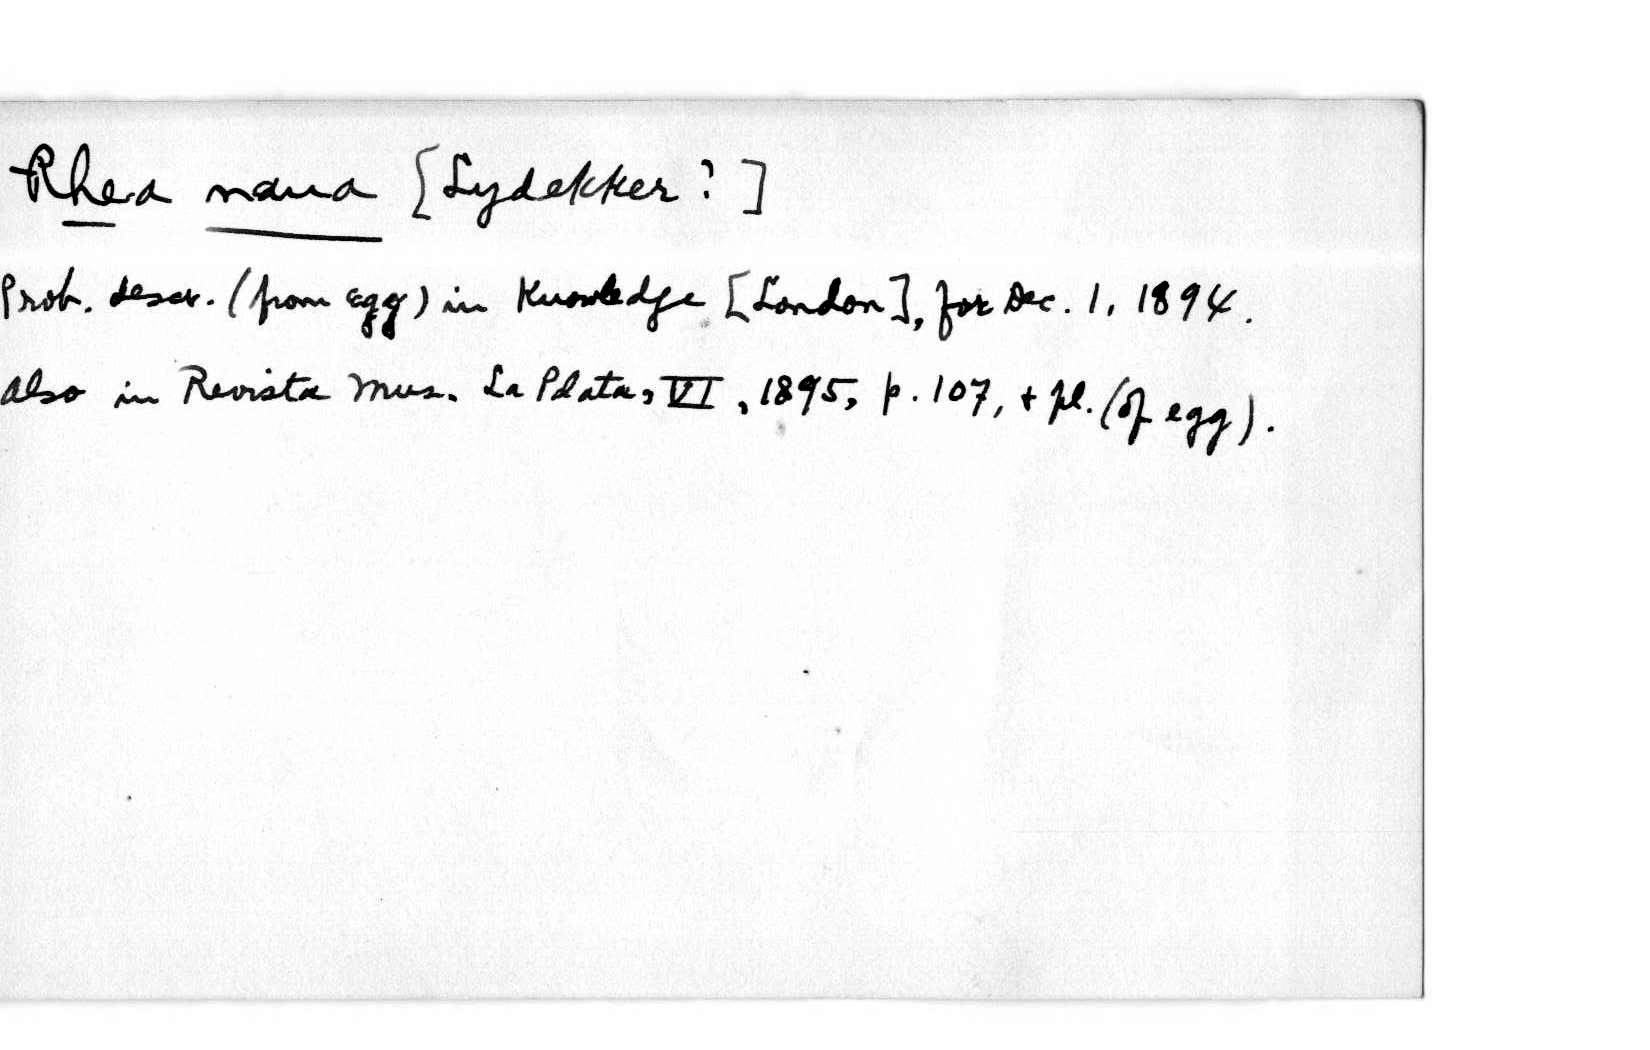 Rhea nana [Lydekker?]
Prob. descr. (from egg) in Knowledge [London], for Dec. 1, 1894.
Also in Revista Mus. La Plata, VI, 1895, p. 107, + pl. (of egg).